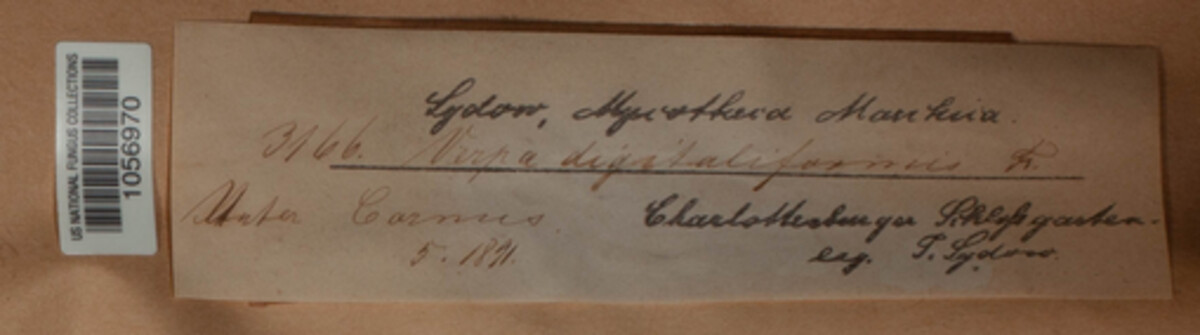 US NATIONAL FUNGUS COLLECTIONS
1056970
Sydow, Mycotheca Marchica.
3166. Verpa digitaliformis Fr.
Unter Cornus
5. 1891.
Charlottenburger Schloßgarten.
leg. P. Sydow.